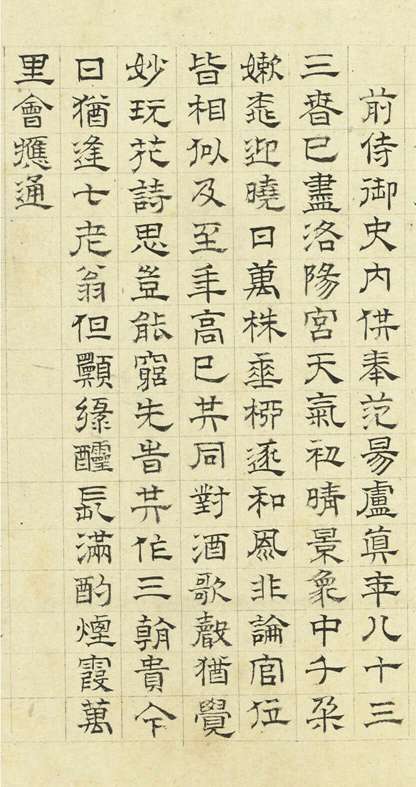 前侍御史内供奉范昜盧眞年八十三
三萅已盡洛陽宮天氣初晴景象中千朶
嫩桃迎曉日萬株垂桺逐和風非論官位
皆相似及至年高已共同對酒歌聲猶覺
妙玩花詩思豈能窮先旹共作三朝貴今
日猶逢七老翁但願綠醽長滿酌煙霞萬
里會應通